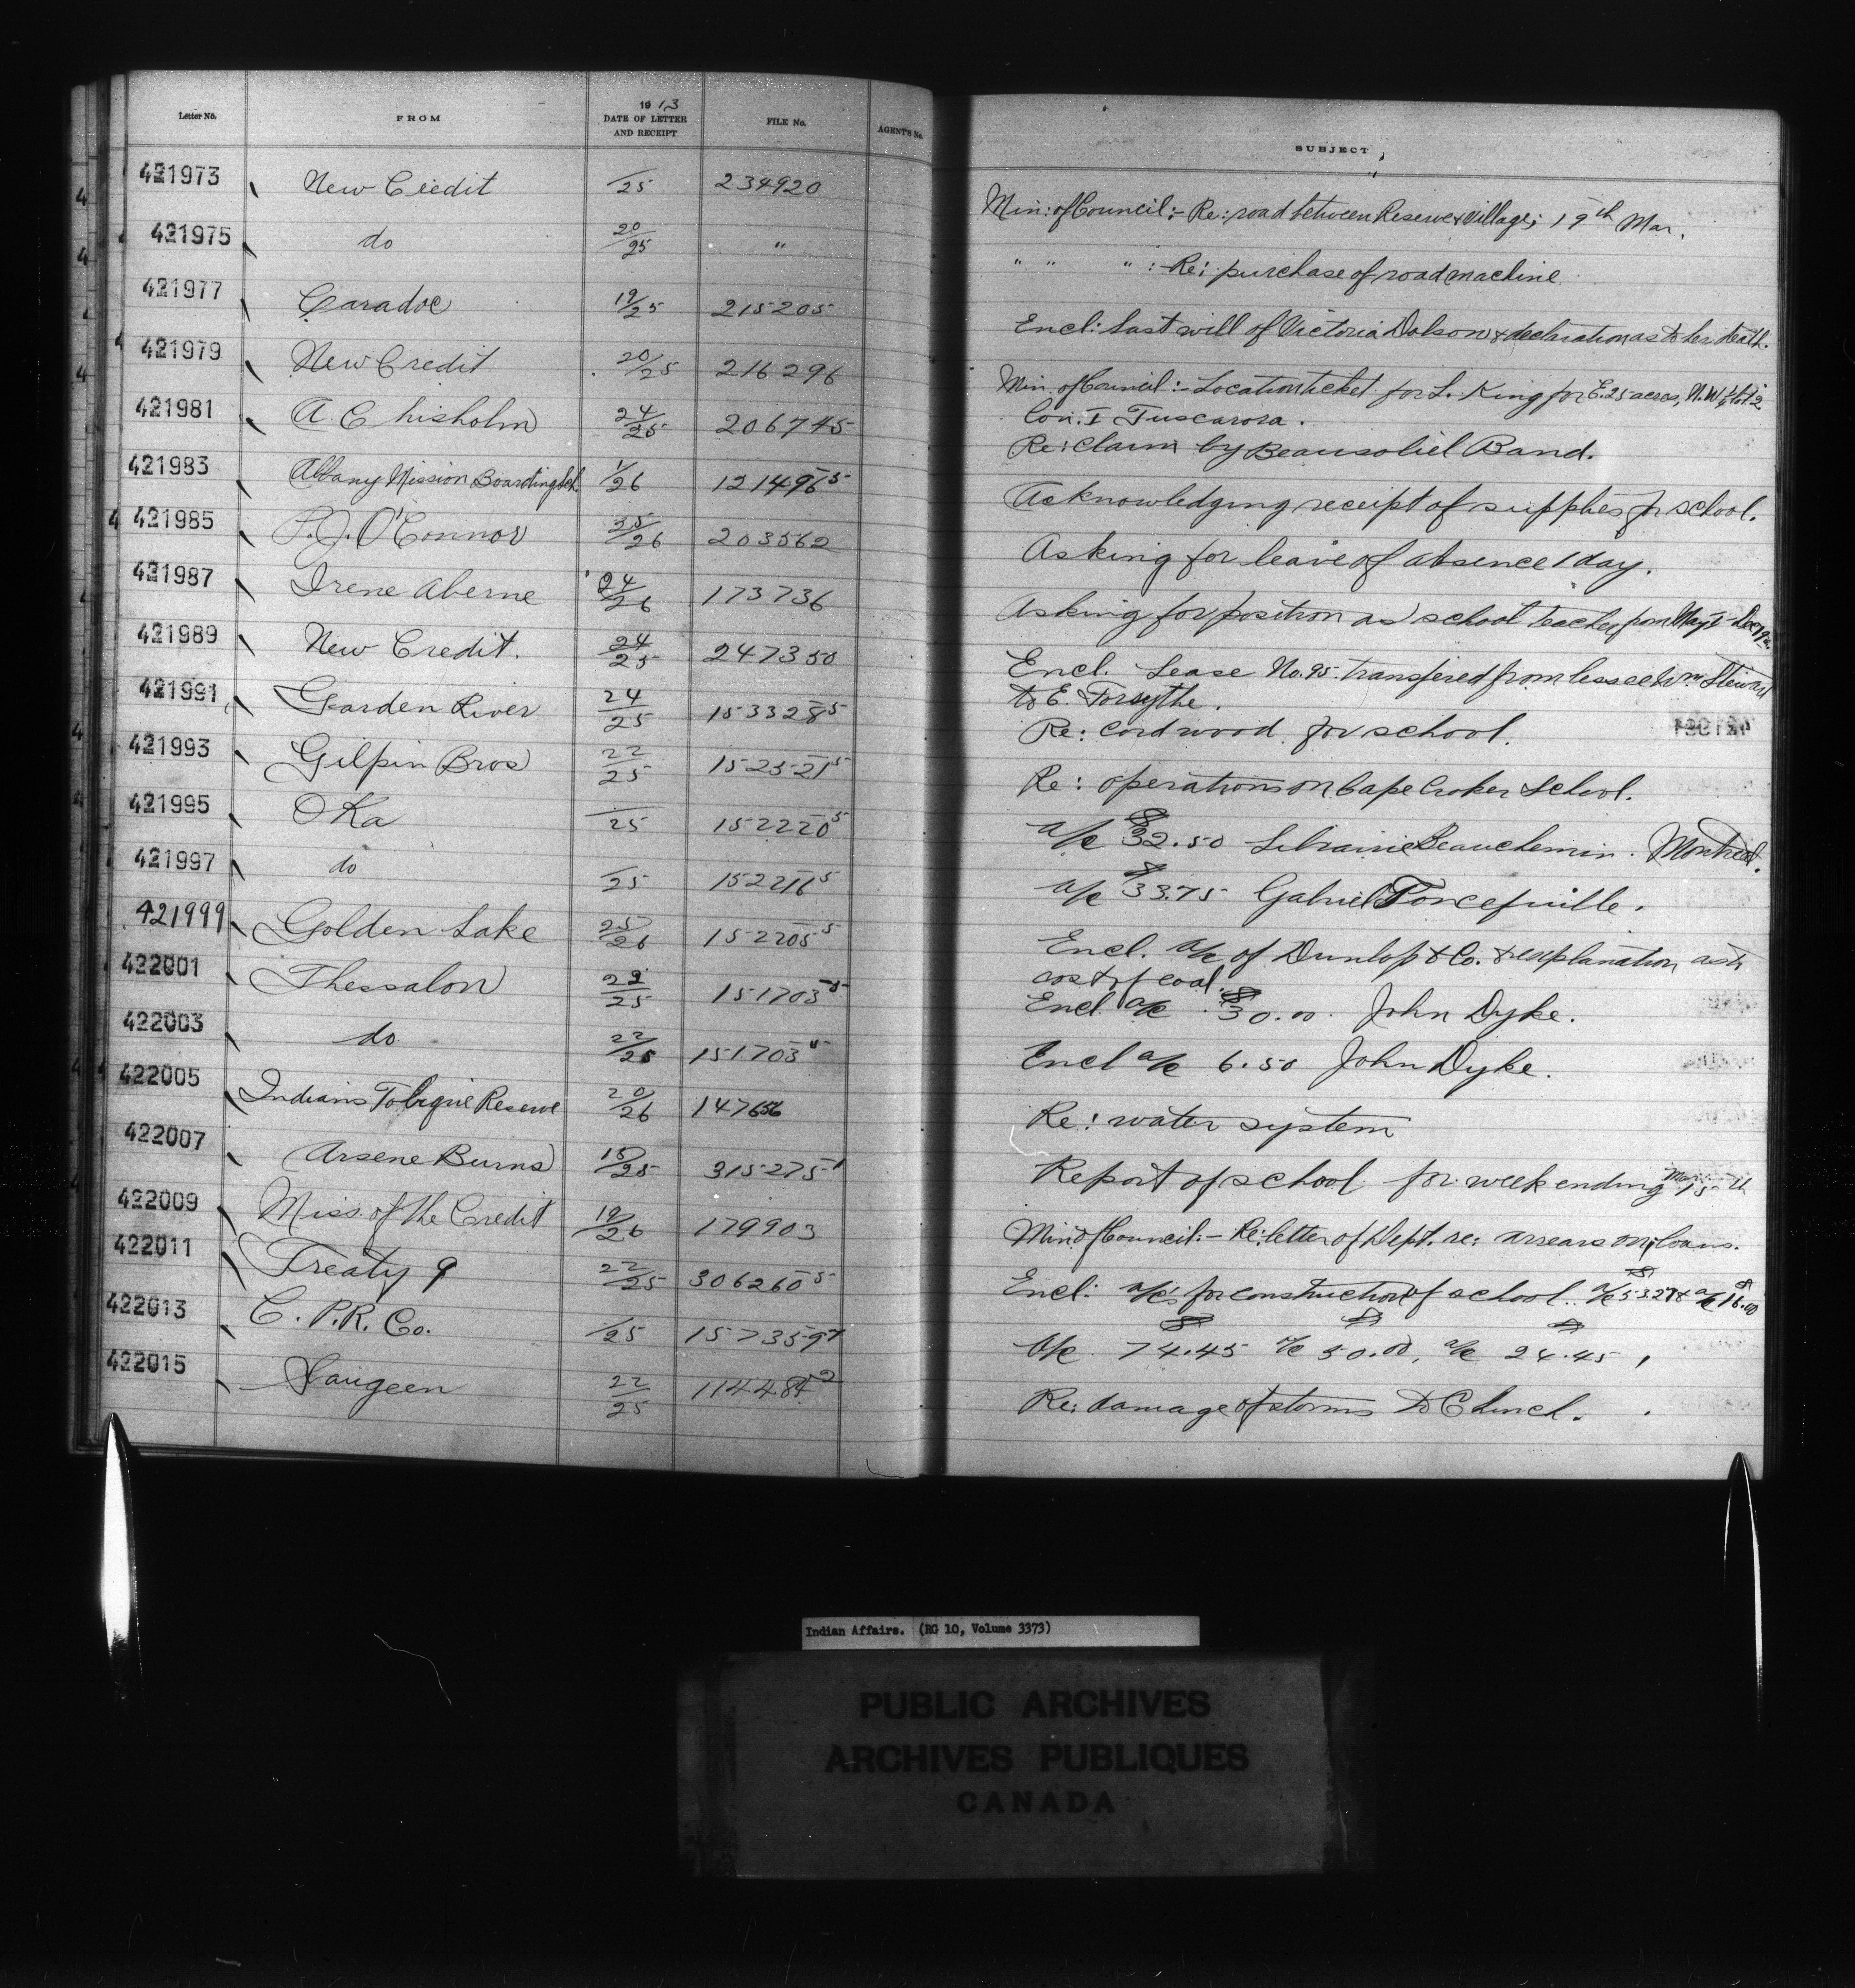 Letter No. FROM 1913 DATE OF LETTER AND RECEIPT FILE No. AGENT'S No. SUBJECT
421973 New Credit /25 234920 Min: of Council:- Re: road between Reserve & Village; 19th Mar.
421975 do 20/25 " " " " : Re: purchase of road machine
421977 Caradoc 19/25 215205 Encl: last will of Victoria Dolson & declaration as to her death.
421979 New Credit 20/25 216296 Min. of Council:- Location ticket for L. King for E. 25 acres, N.W ½ lot 2
Con. I Tuscarora.
421981 A. Chisholm 24/25 206745 Re: claim by Beausoliel Band.
421983 Albany Mission Boarding Sch. 1/26 121496-5 Acknowledging receipt of supplies for school.
421985 P.J. O'Connor 25/26 203562 Asking for leave of absence 1 day.
421987 Irene Aberne 24/26 173736 Asking for position as school teacher from May 1
421989 New Credit. 24/25 247350 Encl. Lease No. 95 transfered from lessee Wm. Stewart
to E. Forsythe.
421991 Garden River 24/25 153328-5 Re: cordwood for school.
421993 Gilpin Bros 22/25 152521-5 Re: operations on Cape Croker School.
421995 Oka /25 152220-5 a/c $32.50 Librairie Beauchemin. Montreal.
421997 do /25 152216-5 a/c $33.75 Gabriel
421999 Golden Lake 25/26 152205-5 Encl. a/c of Dunlop & Co. & explanation as to
cost of coal.
422001 Thessalon 22/25 151703-5 Encl. a/c $30.00 John Dyke.
422003 do 22/25 151703-5 Encl a/c 6.50 John Dyke.
422005 Indians Tobique Reserve 20/26 147656 Re: water system
422007 Arsene Burns 15/25 315275-1 Report of school for week ending Mar. 15th
422009 Miss. of the Credit 19/26 179903 Min of Council:- Re: letter of Dept. re: arrears on loans.
422011 Treaty 9 22/25 306260-5 Encl: a/c's for construction of school. a/c $53.27 & a/c $16.00
422013 C.P.R. Co. /25 157359 a/c $74.45 a/c $50.00, a/c $24.45,
422015 Saugeen 22/25 114484-2 Re: damage of storms to Church.
Indian Affairs. (RG 10, Volume 3373)
PUBLIC ARCHIVES
ARCHIVES PUBLIQUES
CANADA